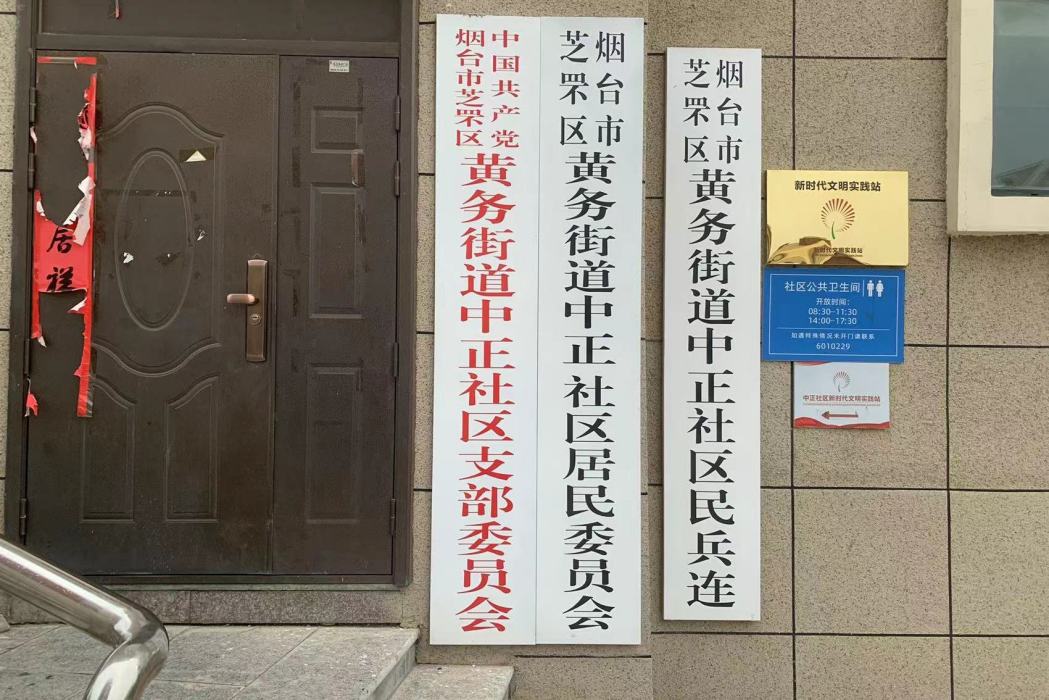 居
祥
中国共产党
烟台市芝罘区
黄务街道中正社区支部委员会
烟台市
芝罘区
黄务街道中正社区居民委员会
烟台市
芝罘区
黄务街道中正社区民兵连
新时代文明实践站
新时代文明实践站
社区公共卫生间
开放时间：
08:30-11:30
14:00-17:30
如遇特殊情况未开门请联系
6010229
中正社区新时代文明实践站